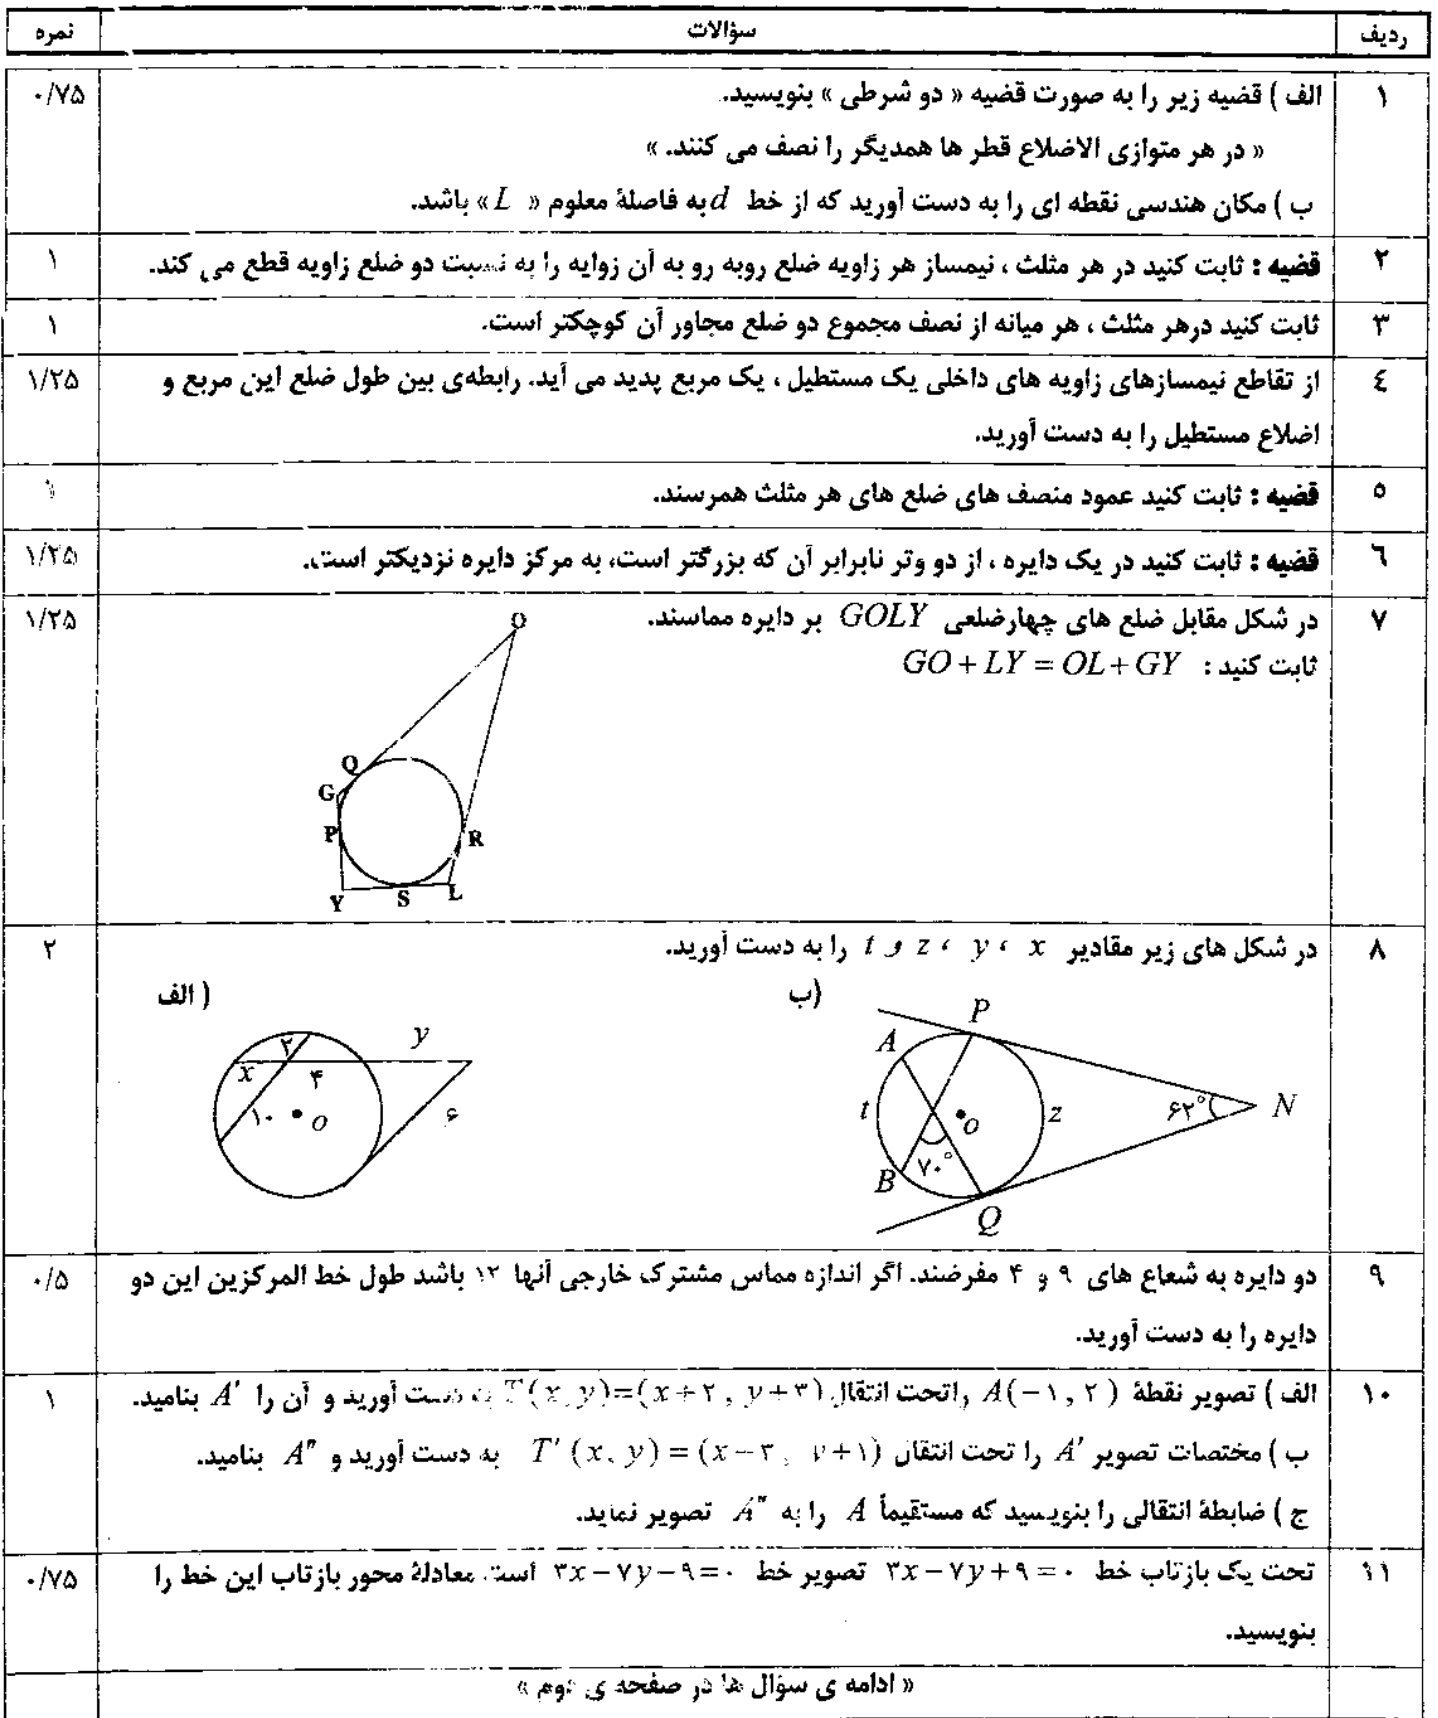 ردیف سؤالات نمره
۱ الف ) قضیه زیر را به صورت قضیه « دو شرطی » بنویسید. ۰/۷۵
« در هر متوازی الاضلاع قطر ها همدیگر را نصف می کنند. »
ب ) مکان هندسی نقطه ای را به دست آورید که از خط d به فاصلۀ معلوم « L » باشد.
۲ قضیه : ثابت کنید در هر مثلث ، نیمساز هر زاویه ضلع روبه رو به آن زوایه را به نسبت دو ضلع زاویه قطع می کند. ۱
۳ ثابت کنید درهر مثلث ، هر میانه از نصف مجموع دو ضلع مجاور آن کوچکتر است. ۱
٤ از تقاطع نیمسازهای زاویه های داخلی یک مستطیل ، یک مربع پدید می آید. رابطه‌ی بین طول ضلع این مربع و ۱/۲۵
اضلاع مستطیل را به دست آورید.
٥ قضیه : ثابت کنید عمود منصف های ضلع های هر مثلث همرسند.
٦ قضیه : ثابت کنید در یک دایره ، از دو وتر نابرابر آن که بزرگتر است، به مرکز دایره نزدیکتر است. ۱/۲۵
۷ در شکل مقابل ضلع های چهارضلعی GOLY بر دایره مماسند. ۱/۲۵
ثابت کنید : GO + LY = OL + GY
O
Q
G
P
R
Y S L
۸ در شکل های زیر مقادیر x ، y ، z و t را به دست آورید. ۲
ب) الف )
P
A
t O z ۶۲° N
B ۷۰°
Q
y
۲
x ۴
۱۰ O ۶
۹ دو دایره به شعاع های ۹ و ۴ مفرضند. اگر اندازه مماس مشترک خارجی آنها ۱۲ باشد طول خط المرکزین این دو ۰/۵
دایره را به دست آورید.
۱۰ الف ) تصویر نقطۀ A(−۱ , ۲) راتحت انتقال T(x, y)=(x+۲ , y+۳) به دست آورید و آن را A′ بنامید. ۱
ب ) مختصات تصویر A′ را تحت انتقال T′ (x, y) = (x−۳ , y+۱) به دست آورید و A″ بنامید.
ج ) ضابطۀ انتقالی را بنویسید که مستقیماً A را به A″ تصویر نماید.
۱۱ تحت یک بازتاب خط ۳x−۷y+۹=۰ تصویر خط ۳x−۷y−۹=۰ است. معادلۀ محور بازتاب این خط را ۰/۷۵
بنویسید.
« ادامه ی سؤال ها در صفحه ی دوم »